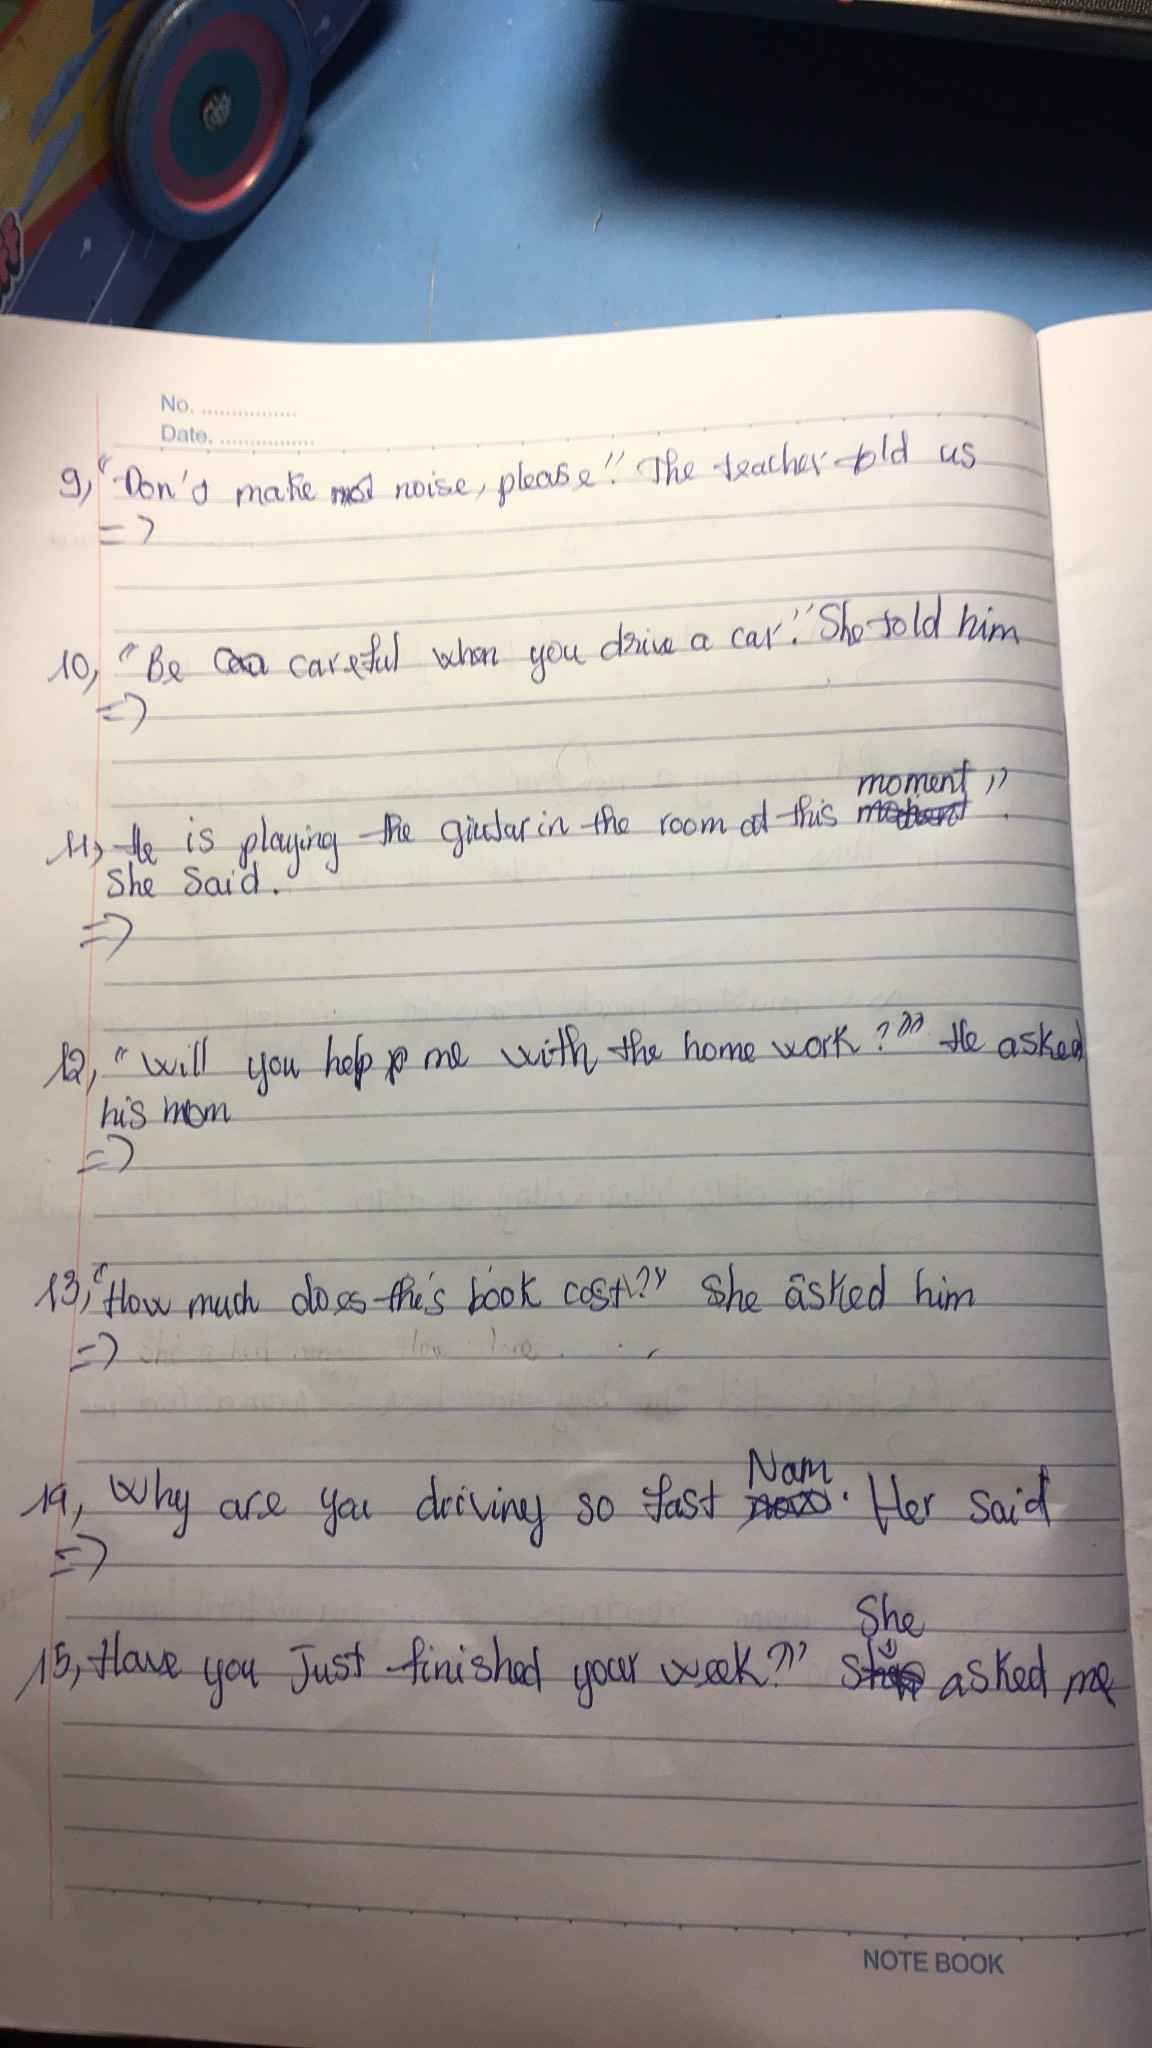 No. ................
Date. ................
9, "Don't make noise, please". The teacher told us
=>
10, "Be careful when you drive a car." She told him
=>
moment "
11, He is playing the giutar in the room at this .
She said.
=>
12, "Will you help me with the home work?"" He asked
his mom
=>
13, "How much does this book cost?" She asked him
=>
Nam
14, Why are you driving so fast . Her said
=>
She
15, Have you Just finished your week?" asked me
NOTE BOOK